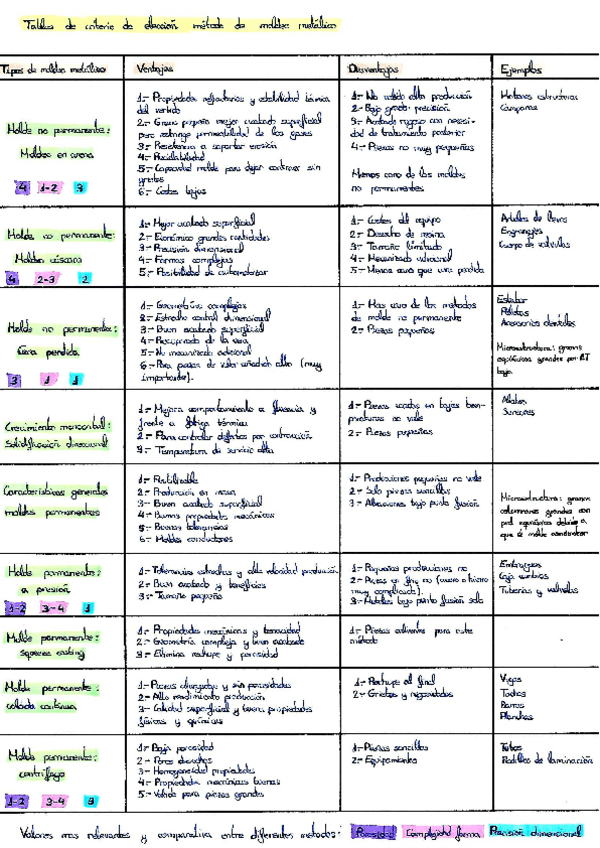 Tablas de criterio de elección método de moldeo metálico
Tipos de moldeo metálico
Ventajas
Desventajas
Ejemplos
Molde no permanente:
Moldeo en arena
4 1-2 3
1.- Propiedades refractarias y estabilidad térmica
del vertido
2.- Grano pequeño mejor acabado superficial
pero restringe permeabilidad de los gases
3.- Resistencia a soportar erosión
4.- Reciclabilidad
5.- Capacidad molde para dejar contraer sin
grietas
6.- Costes bajos
1.- No válido alta producción
2.- Bajo grado precisión
3.- Acabado rugoso con necesi-
dad de tratamiento posterior
4.- Piezas no muy pequeñas
Menos caro de los moldes
no permanentes
Campanas
Molde no permanente:
Moldeo cáscara
4 2-3 2
1.- Mejor acabado superficial
2.- Económico grandes cantidades
3.- Precisión dimensional
4.- Formas complejas
5.- Posibilidad de automatizar
1.- Costes del equipo
2.- Desecho de resina
3.- Tamaño limitado
4.- Mecanizado adicional
5.- Menos cara que cera perdida
Árboles de levas
Engranajes
Cuerpo de válvulas
Molde no permanente:
Cera perdida
3 1 1
1.- Geometrías complejas
2.- Estrecho control dimensional
3.- Buen acabado superficial
4.- Recuperado de la cera
5.- No mecanizado adicional
6.- Para piezas de valor añadido alto (muy
importante).
1.- Mas caro de los métodos
de molde no permanente
2.- Piezas pequeñas
Álabes
Accesorios dentales
Microestructura: granos
equiáxicos grandes por ΔT
baja
Crecimiento monocristal:
Solidificación direccional
1.- Mejora comportamiento a fluencia y
frente a fatiga térmica
2.- Para controlar defectos por contracción
3.- Temperatura de servicio alta
1.- Piezas usadas en bajas tem-
peraturas no vale
2.- Piezas pequeñas
Álabes
Características generales
moldes permanentes
1.- Reutilizable
2.- Producción en masa
3.- Buen acabado superficial
4.- Buenas propiedades mecánicas
5.- Buenas tolerancias
6.- Moldes conductores
1.- Producciones pequeñas no vale
2.- Solo piezas sencillas
3.- Aleaciones bajo punto fusión
Microestructura: granos
columnares grandes con
prof. equiáxicos debido a
que el molde conductor
Molde permanente:
a presión
1-2 3-4 1
1.- Tolerancias estrechas y alta velocidad producción
2.- Buen acabado y beneficios
3.- Tamaño pequeño
1.- Pequeñas producciones no
2.- Piezas en Fe no (acero o hierro
muy complicado).
3.- Metales bajo punto fusión solo
Embragues
Caja cambios
Tuberías y válvulas
Molde permanente:
squeeze casting
1.- Propiedades mecánicas y tenacidad
2.- Geometría compleja y buen acabado
3.- Elimina rechupe y porosidad
1.- Piezas calientes para este
método
Molde permanente:
colada continua
1.- Piezas alargadas y sin porosidades
2.- Alto rendimiento producción
3.- Calidad superficial y buena propiedades
físicas y químicas
1.- Rechupe al final
2.- Grietas y segregados
Vigas
Tochos
Barras
Planchas
Molde permanente:
centrífugo
1-2 3-4 3
1.- Baja porosidad
2.- Poros
3.- Homogeneidad propiedades
4.- Propiedades mecánicas buenas
5.- Válido para piezas grandes
1.- Piezas sencillas
2.- Equipamiento
Tubos
Rodillos de laminación
Valores mas relevantes y comparativa entre diferentes métodos: Porosidad Complejidad forma Precisión dimensional